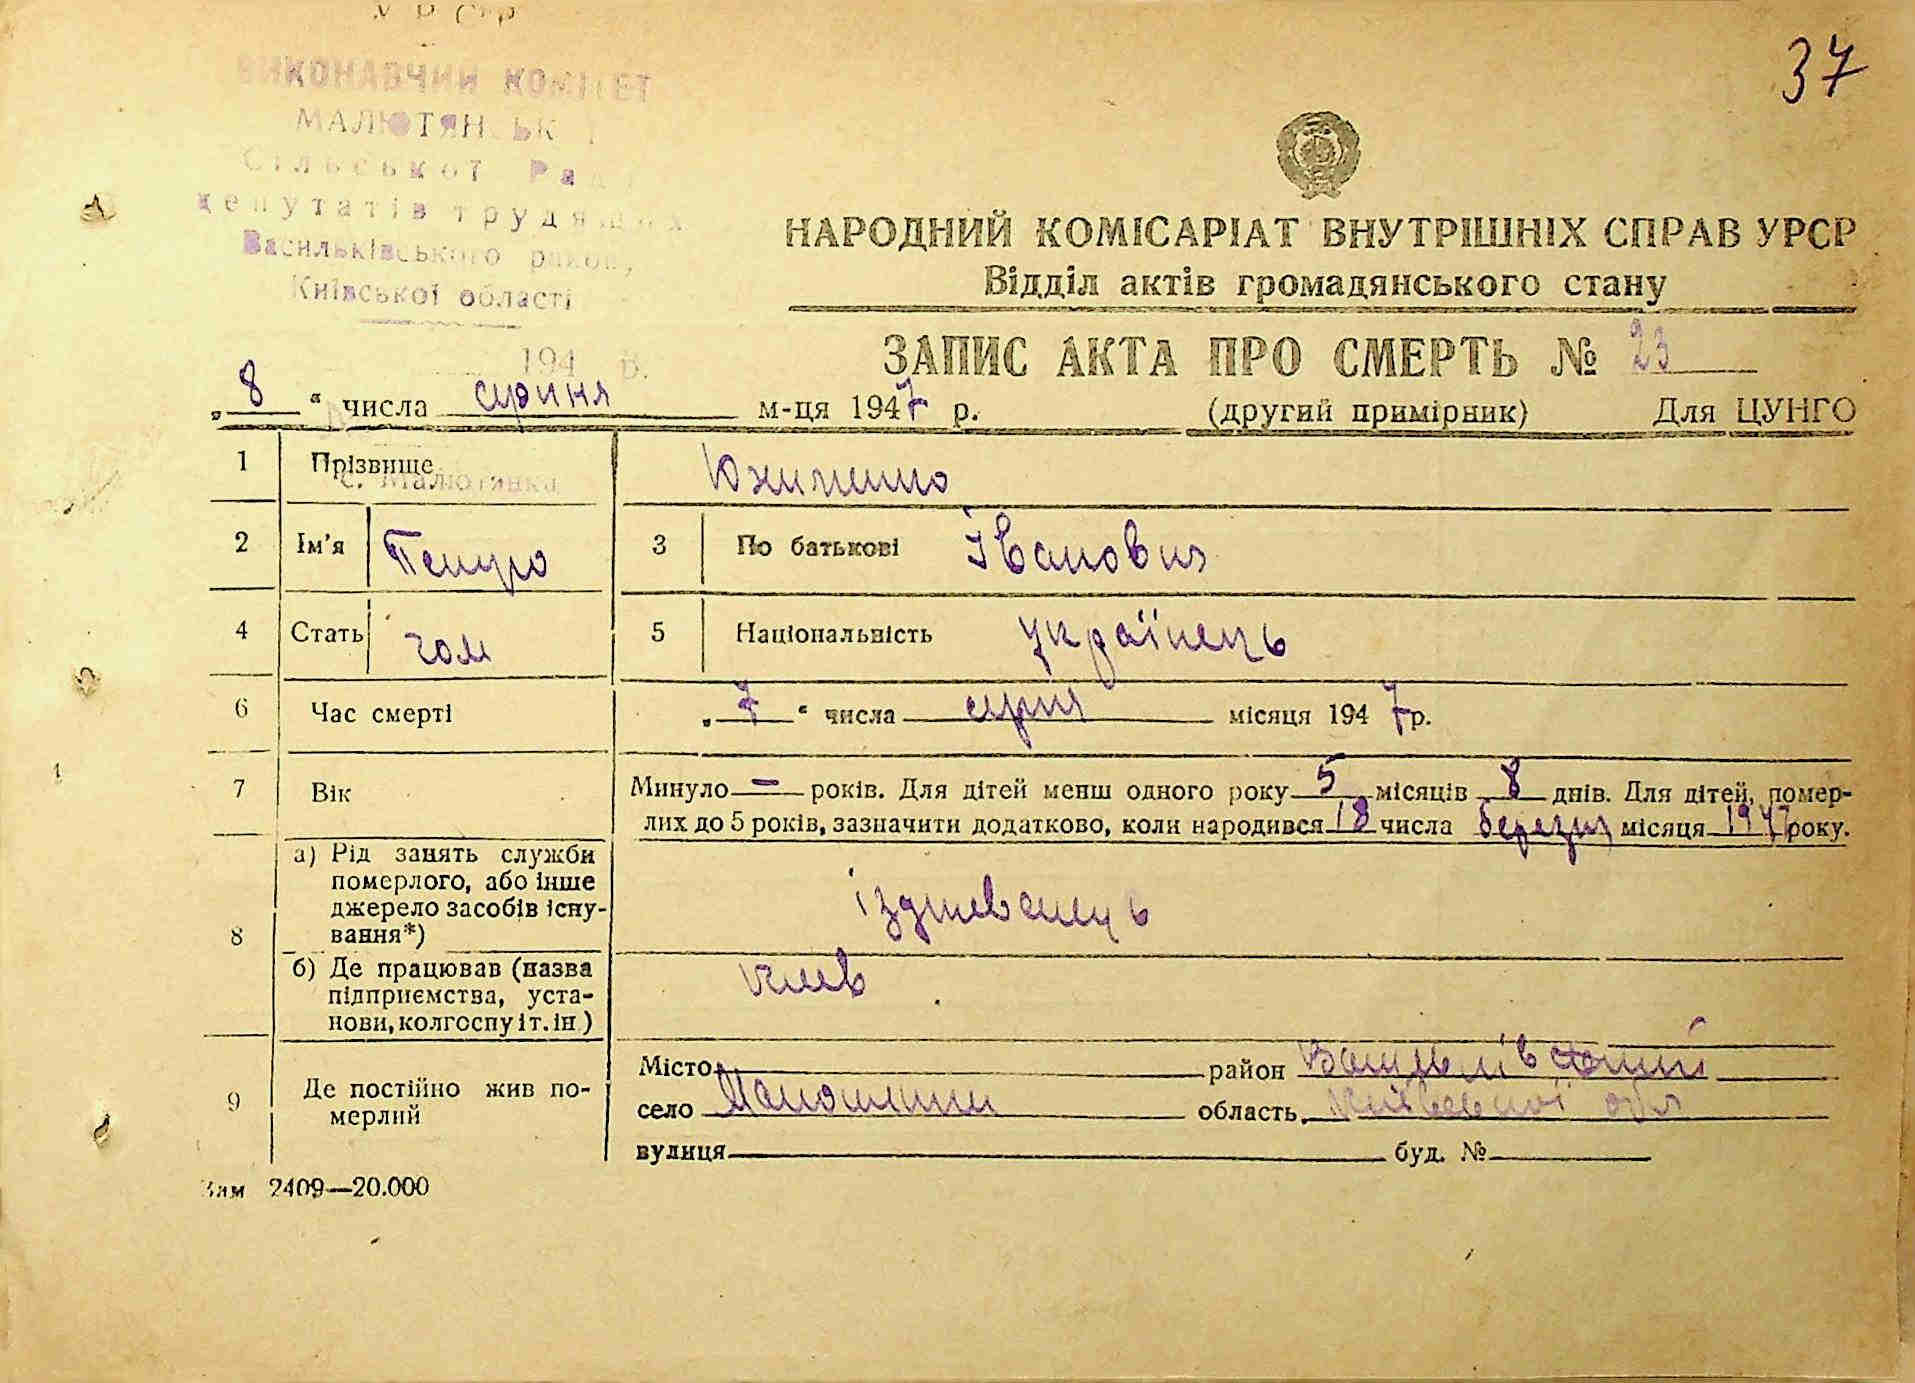 УРСР
37
ВИКОНАВЧИЙ КОМІТЕТ
МАЛЮТЯНСЬК
Сільської Рад
депутатів трудящих
Васильківського району,
Київської області
194 в.
с. Малютянка
НАРОДНИЙ КОМІСАРІАТ ВНУТРІШНІХ СПРАВ УРСР
Відділ актів громадянського стану
ЗАПИС АКТА ПРО СМЕРТЬ № 23
„8“ числа серпня м-ця 1947 р. (другий примірник) Для ЦУНГО
1 Прізвище
2 Ім'я Петро 3 По батькові Іванович
4 Стать чол 5 Національність українець
6 Час смерті „7“ числа серпня місяця 1947 р.
7 Вік Минуло — років. Для дітей менш одного року 5 місяців 8 днів. Для дітей, помер-
лих до 5 років, зазначити додатково, коли народився 18 числа березня місяця 1947 року.
8 а) Рід занять служби
померлого, або інше
джерело засобів існу-
вання*)
б) Де працював (назва
підприємства, уста-
нови, колгоспу і т. ін.)
9 Де постійно жив по-
мерлий
Місто район Васильківський
село область Київської обл
вулиця буд. №
Зам 2409—20.000